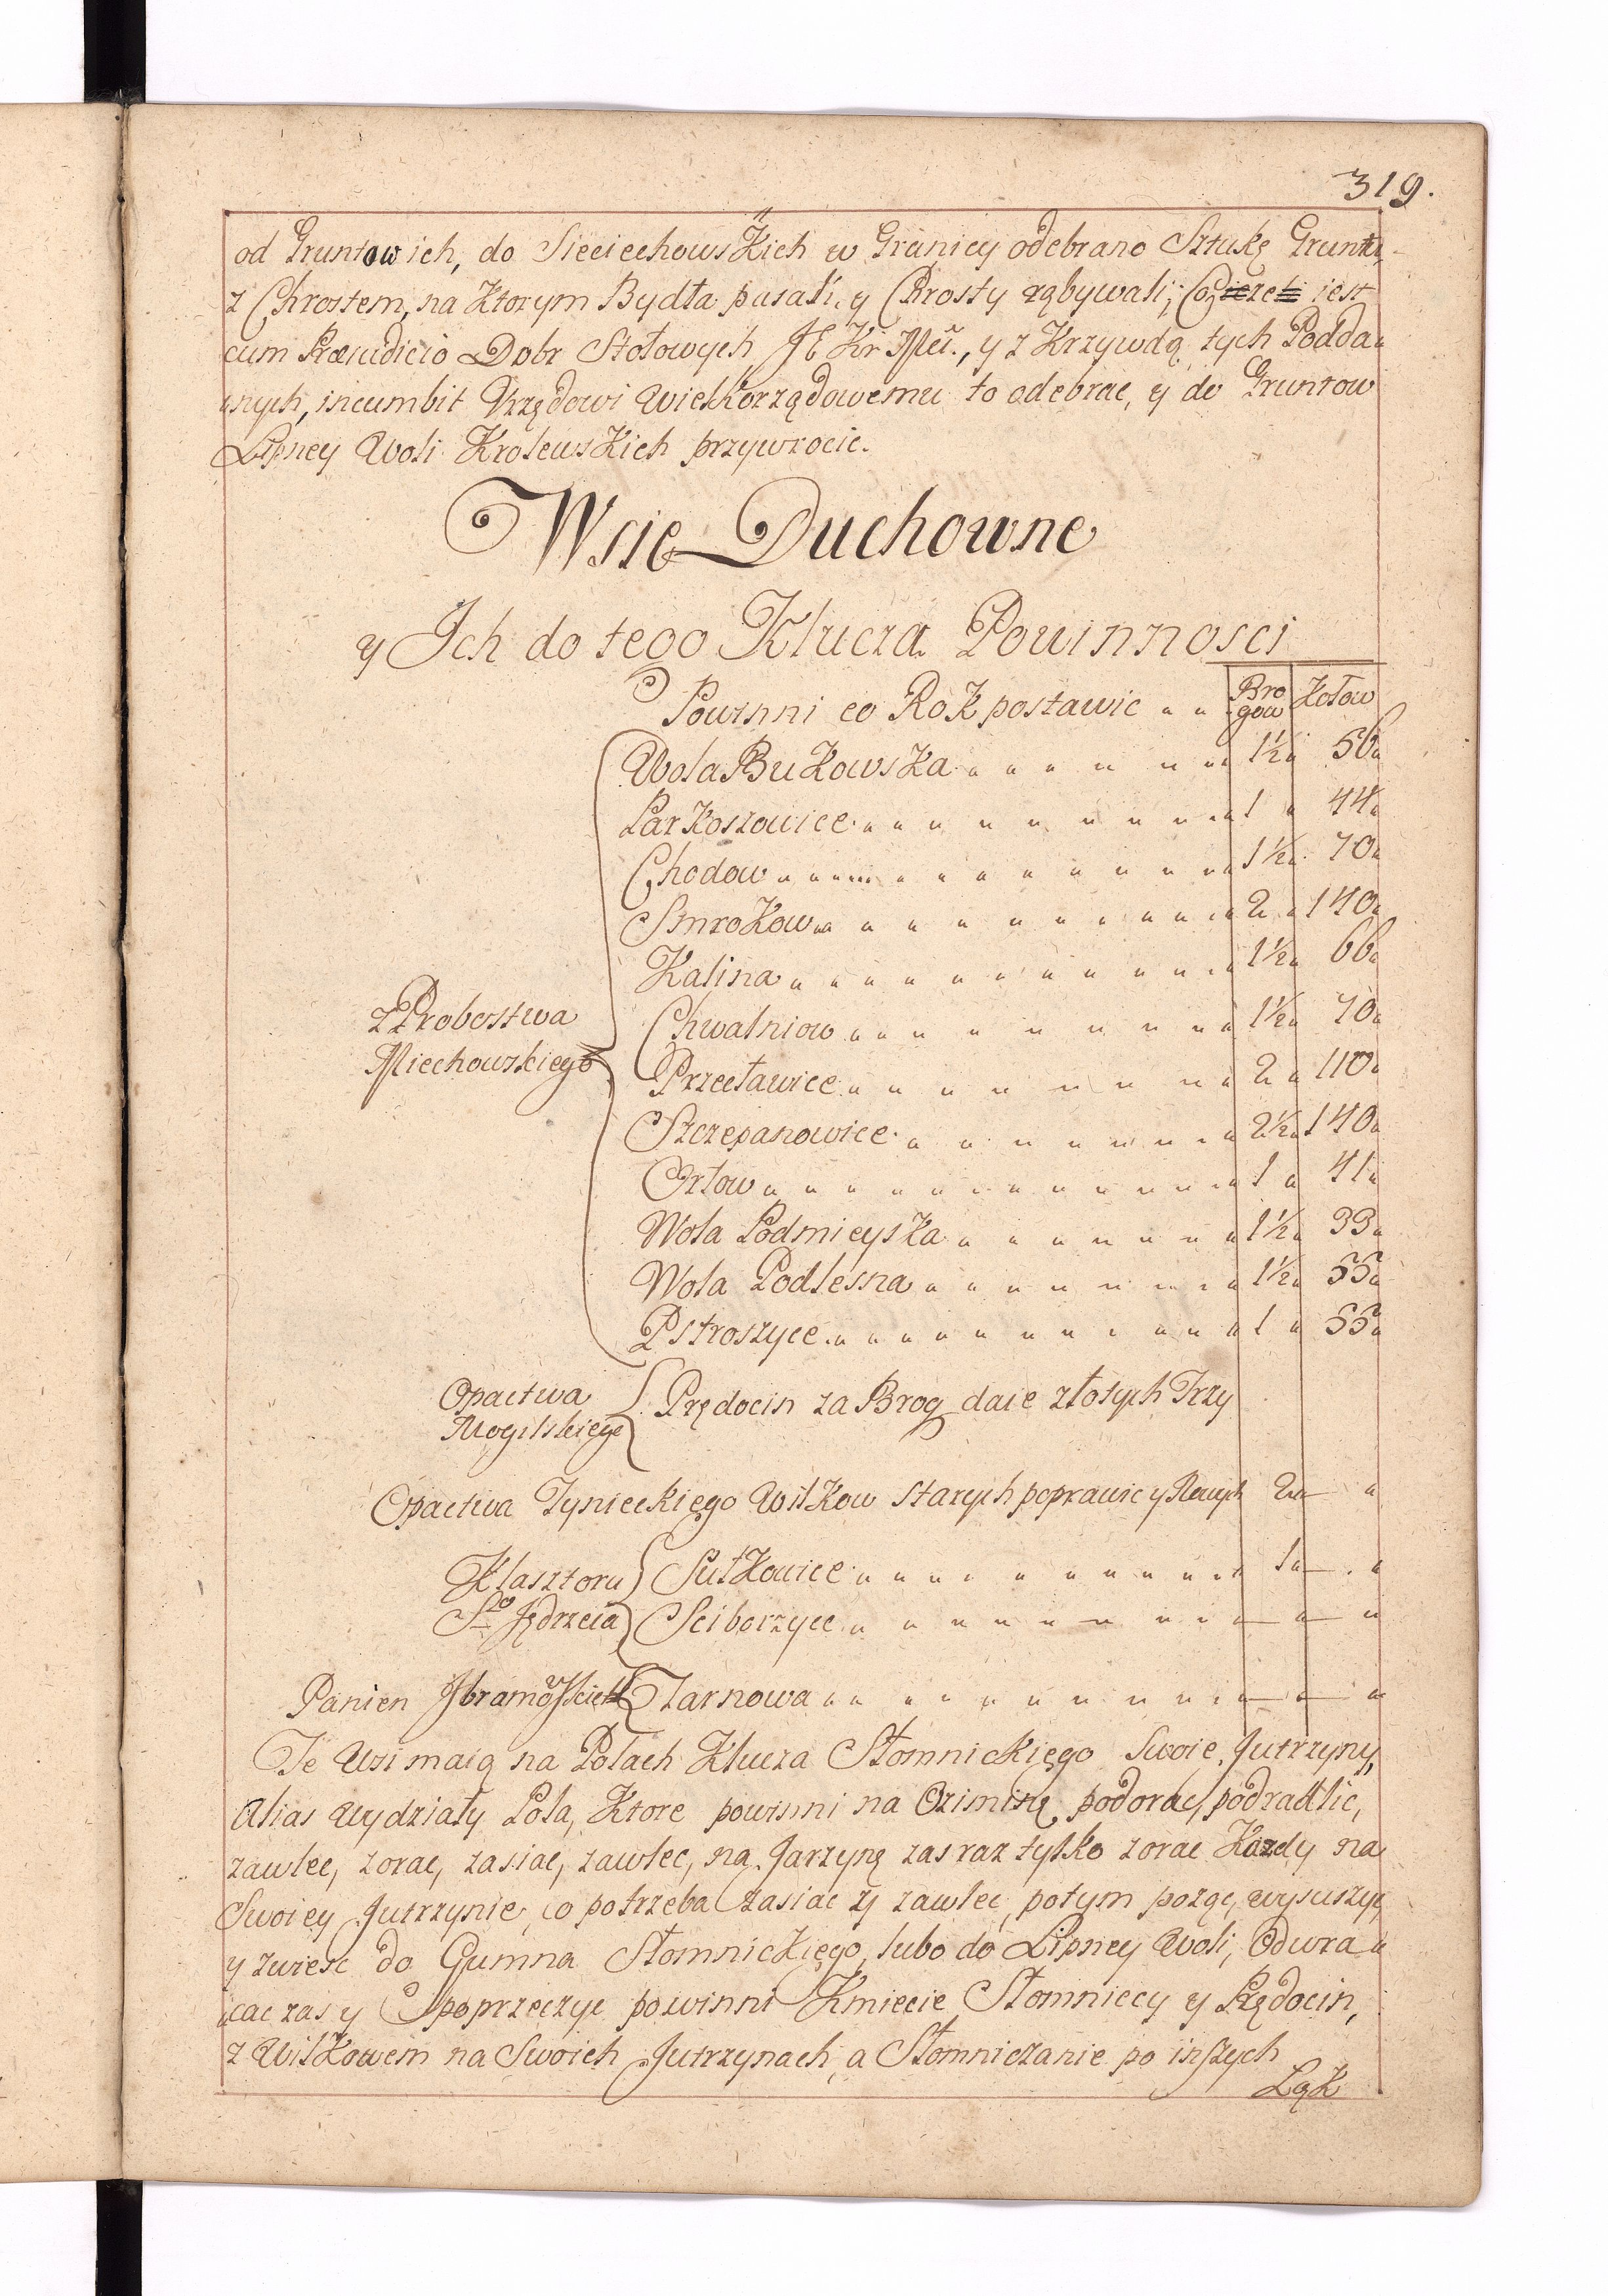 319.
od Gruntow ich, do Sieciechowskich w Granicy odebrano Sztukę Gruntu
z Chrostem, na Ktorym Bydła pasali, y Chrosty rąbywali; Co jest
cum Præiudicio Dobr Stołowych J K Kr Mci., y z Krzywdą tych Podda„
„nych, incumbit Urzędowi Wielkorządowemu to odebrac, y do Gruntow
Lipney Woli Krolewskich przywrocic.
Wsie Duchowne
y Jch do tego Klucza Powinnosci
Powinni co Rok postawic „ „ Bro gow Kołow
Wola Bukowska 1½ 56
Parkoszowice 1 44
Chodow 1½ 70
Smrokow 2 140
Kalina 1½ 66
z Probostwa Miechowskiego
Chwalniow 1½ 70
Przecławice 2 110
Szczepanowice 2½ 140
Orłow 1 41
Wola Podmieyska 1½ 33
Wola Podlesna 1½ 55
Pstroszyce 1 55
Opactwa Mogilskiego Prędocin za Brog daie złotych Trzy
Opactwa Tynieckięgo Wilkow starych poprawic y Nowych 2
Klasztoru Sułkowice 1
Sgo Jędrzeia Sciborzyce
Panien Jbramowskich Czarnowa
Te Wsi maią na Polach Klucza Słomnickięgo Swoie Jutrzyny,
Alias Wydziały Pola, Ktore powinni na Oziminę podorac, podradlic,
zawlec, zorac, zasiac, zawlec, na Jarzynę zas raz tylko zorac Kazdy na
Swoiey Jutrzynie, co potrzeba zasiac y zawlec, potym pożąc, wysuszyc,
y zwiesc do Gumna Słomnickięgo, lubo do Lipney Woli, Odwra„
„cac zas y Spoprzeczyc powinni Kmiecie Słomniccy y Prędocin,
z Wilkowem na Swoich Jutrzynach, a Słomniczanie po inszych
Ląk